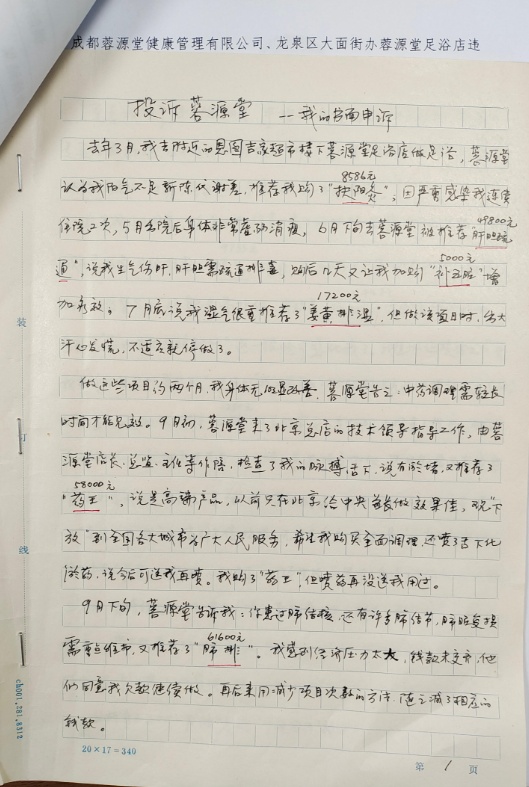 成都蓉源堂健康管理有限公司、龙泉区大面街办蓉源堂足浴店违
投诉蓉源堂
——我的书面申诉
去年3月,我去附近的恩图吉家超市楼下蓉源堂足浴店做足浴,蓉源堂
8586元
认为我阳气不足新陈代谢差,推荐我购了"扶阳灸",因严重感染我连续
住院二次,5月出院后身体非常虚弱消瘦,6月下旬去蓉源堂被推荐"肝胆疏
49800元
通",说我生气伤肝,肝胆需疏通排毒,购后几天又让我加购"补五脏"增
5000元
加负效。7月底说我湿气很重推荐了"姜黄排湿",但做该项目时,出大
17200元
汗心发慌,不适应就停做了。
做这些项目约两个月,我身体无明显改善,蓉源堂告之:中药调理需较长
时间才能见效。9月初,蓉源堂来了北京总店的技术领导指导工作,由蓉
源堂店长、总监、主任等作陪,检查了我的脉搏舌下,说有瘀堵,又推荐了
58000元
"药王",说是高端产品,以前只在北京给中央首长做效果佳,现"下
放"到全国各大城市为广大人民服务,希望我购买全面调理,还喷了舌下化
瘀药,说今后可送我再喷。我购了"药王",但喷药再没送我用过。
9月下旬,蓉源堂告诉我:你患过肺结核,还有许多肺结节,肺
需重点维护,又推荐了"肺排"。我感到经济压力太大,钱款未交齐,他
61600元
们同意我欠款继续做。再后采用减少项目次数的方法,随之减了相应的
钱款。
装
订
线
cb001.781.8312
20×17=340
第 1 页